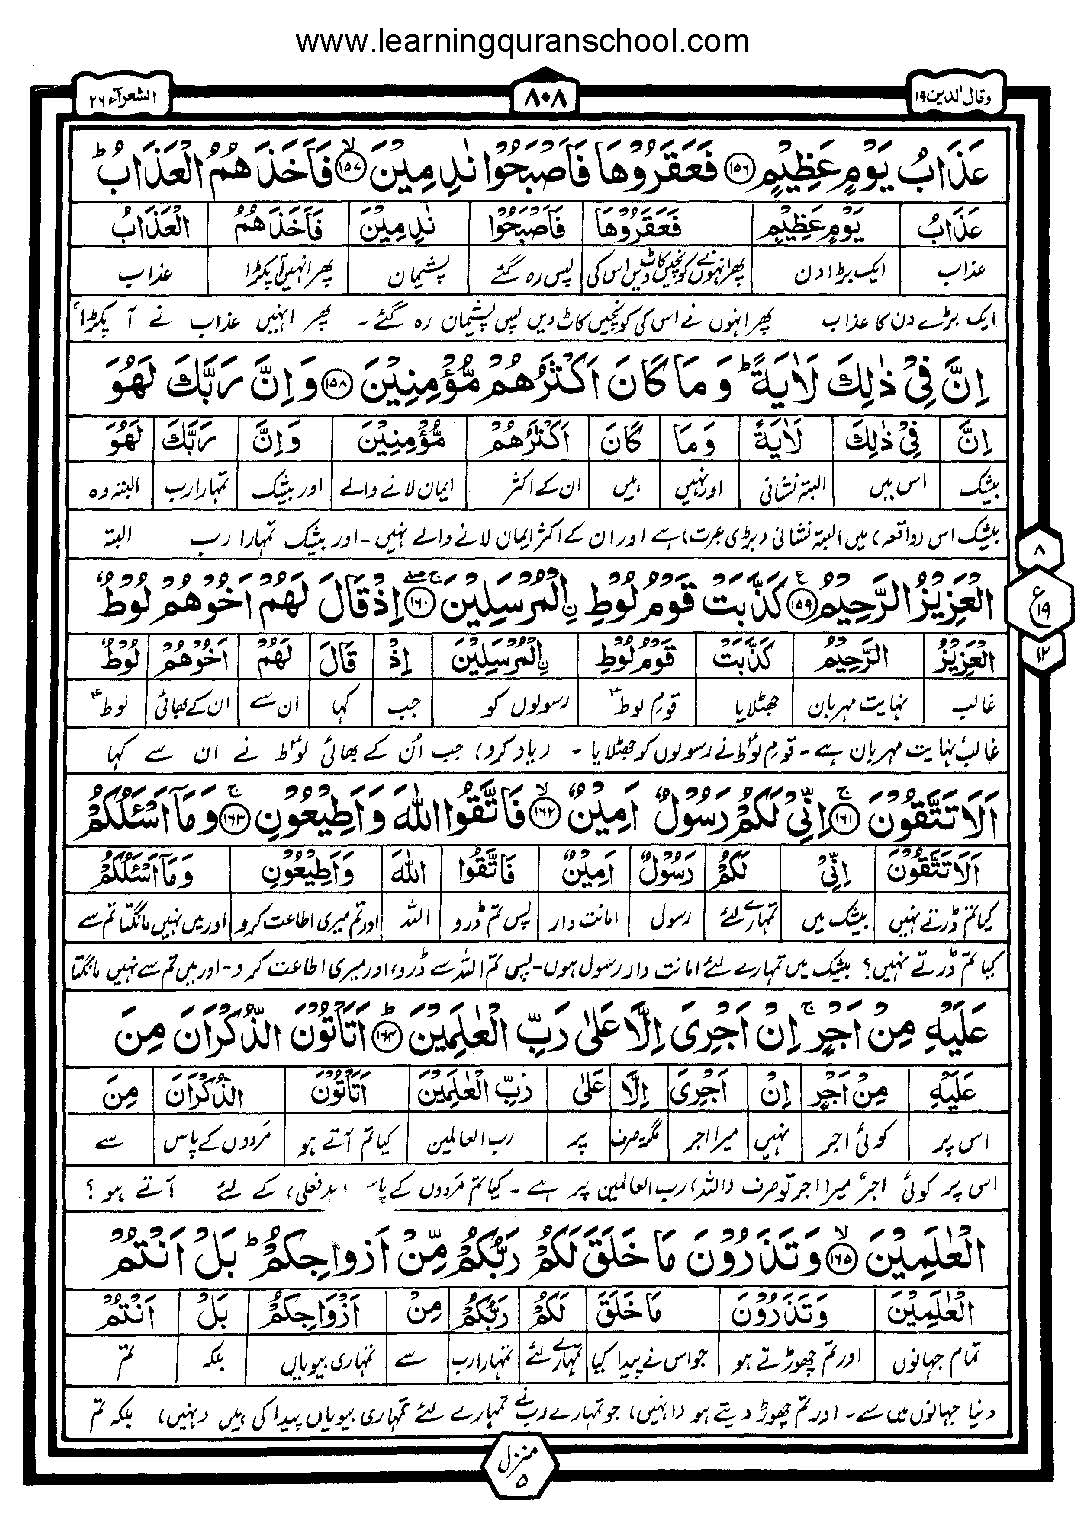 www.learningquranschool.com
وقال الذین ۱۹
۸۰۸
الشعرآء ۲۶
عَذَابُ يَوْمٍ عَظِيْمٍ ۱۵۶ فَعَقَرُوْهَا فَاَصْبَحُوْا نٰدِمِيْنَ ۱۵۷ۙ فَاَخَذَهُمُ الْعَذَابُ ؕ
عَذَابُ يَوْمٍ عَظِيْمٍ فَعَقَرُوْهَا فَاَصْبَحُوْا نٰدِمِيْنَ فَاَخَذَهُمُ الْعَذَابُ
عذاب ایک بڑا دن پھر انہوں نے کونچیں کاٹ دیں اس کی پس رہ گئے پشیمان پھر انہیں آ پکڑا عذاب
ایک بڑے دن کا عذاب پھر انہوں نے اس کی کونچیں کاٹ دیں پس پشیمان رہ گئے۔ پھر انہیں عذاب نے آ پکڑا،
اِنَّ فِيْ ذٰلِكَ لَاٰيَةً ؕ وَمَا كَانَ اَكْثَرُهُمْ مُّؤْمِنِيْنَ ۱۵۸ وَاِنَّ رَبَّكَ لَهُوَ
اِنَّ فِيْ ذٰلِكَ لَاٰيَةً وَمَا كَانَ اَكْثَرُهُمْ مُّؤْمِنِيْنَ وَاِنَّ رَبَّكَ لَهُوَ
بیشک اس میں البتہ نشانی اور نہیں ہیں ان کے اکثر ایمان لانے والے اور بیشک تمہارا رب البتہ وہ
بیشک اس (واقعہ) میں البتہ نشانی (بڑی عبرت) ہے اور ان کے اکثر ایمان لانے والے نہیں۔ اور بیشک تمہارا رب البتہ
الْعَزِيْزُ الرَّحِيْمُ ۱۵۹ۧ كَذَّبَتْ قَوْمُ لُوْطِ ِۨالْمُرْسَلِيْنَ ۱۶۰ۚۖ اِذْ قَالَ لَهُمْ اَخُوْهُمْ لُوْطٌ
۸
ع ۱۹
۱۲
الْعَزِيْزُ الرَّحِيْمُ كَذَّبَتْ قَوْمُ لُوْطِ ِۨالْمُرْسَلِيْنَ اِذْ قَالَ لَهُمْ اَخُوْهُمْ لُوْطٌ
غالب نہایت مہربان جھٹلایا قومِ لوطؑ رسولوں کو جب کہا ان سے ان کے بھائی لوطؑ
غالب نہایت مہربان ہے۔ قومِ لوطؑ نے رسولوں کو جھٹلایا۔ (یاد کرو) جب اُن کے بھائی لوطؑ نے ان سے کہا
اَلَا تَتَّقُوْنَ ۱۶۱ۚ اِنِّيْ لَكُمْ رَسُوْلٌ اَمِيْنٌ ۱۶۲ۙ فَاتَّقُوا اللّٰهَ وَاَطِيْعُوْنِ ۱۶۳ۚ وَمَاۤ اَسْئَلُكُمْ
اَلَا تَتَّقُوْنَ اِنِّيْ لَكُمْ رَسُوْلٌ اَمِيْنٌ فَاتَّقُوا اللّٰهَ وَاَطِيْعُوْنِ وَمَاۤ اَسْئَلُكُمْ
کیا تم ڈرتے نہیں بیشک میں تمہارے لئے رسول امانت دار پس تم ڈرو اللہ اور تم میری اطاعت کرو اور میں نہیں مانگتا تم سے
کیا تم ڈرتے نہیں؟ بیشک میں تمہارے لئے امانت دار رسول ہوں۔ پس تم اللہ سے ڈرو، اور میری اطاعت کرو۔ اور میں تم سے نہیں مانگتا
عَلَيْهِ مِنْ اَجْرٍ ۚ اِنْ اَجْرِيَ اِلَّا عَلٰى رَبِّ الْعٰلَمِيْنَ ۱۶۴ؕ اَتَاْتُوْنَ الذُّكْرَانَ مِنَ
عَلَيْهِ مِنْ اَجْرٍ اِنْ اَجْرِيَ اِلَّا عَلٰى رَبِّ الْعٰلَمِيْنَ اَتَاْتُوْنَ الذُّكْرَانَ مِنَ
اس پر کوئی اجر نہیں میرا اجر مگر۔صرف پر رب العالمین کیا تم آتے ہو مَردوں کے پاس سے
اس پر کوئی اجر، میرا اجر تو صرف (اللہ) رب العالمین پر ہے۔ کیا تم مَردوں کے پاس (بدفعلی) کے لئے آتے ہو؟
الْعٰلَمِيْنَ ۱۶۵ۙ وَتَذَرُوْنَ مَا خَلَقَ لَكُمْ رَبُّكُمْ مِّنْ اَزْوَاجِكُمْ ؕ بَلْ اَنْتُمْ
الْعٰلَمِيْنَ وَتَذَرُوْنَ مَا خَلَقَ لَكُمْ رَبُّكُمْ مِنْ اَزْوَاجِكُمْ بَلْ اَنْتُمْ
تمام جہانوں اور تم چھوڑتے ہو جو اس نے پیدا کیا تمہارے لئے تمہارا رب سے تمہاری بیویاں بلکہ تم
دنیا جہانوں میں سے۔ اور تم چھوڑ دیتے ہو (انہیں) جو تمہارے رب نے تمہارے لئے تمہاری بیویاں پیدا کی ہیں (نہیں) بلکہ تم
منزل ۵